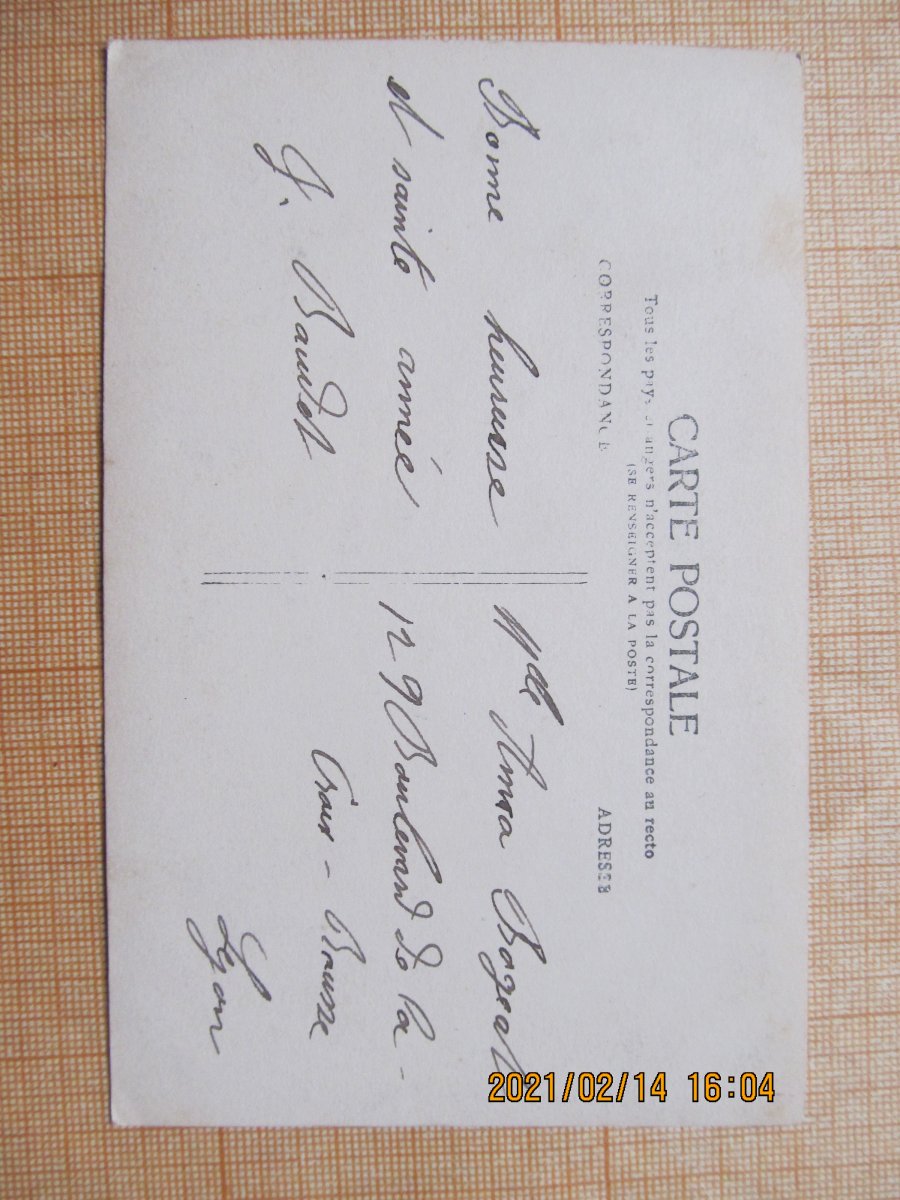 CARTE POSTALE
Tous les pays étrangers n'acceptent pas la correspondance au recto
(SE RENSEIGNER A LA POSTE)
CORRESPONDANCE
ADRESSE
Bonne heureuse
et sainte année
J. Baudet
Mlle Anna Bageat
129 Boulevard de la -
Croix - Rousse
Lyon
2021/02/14 16:04